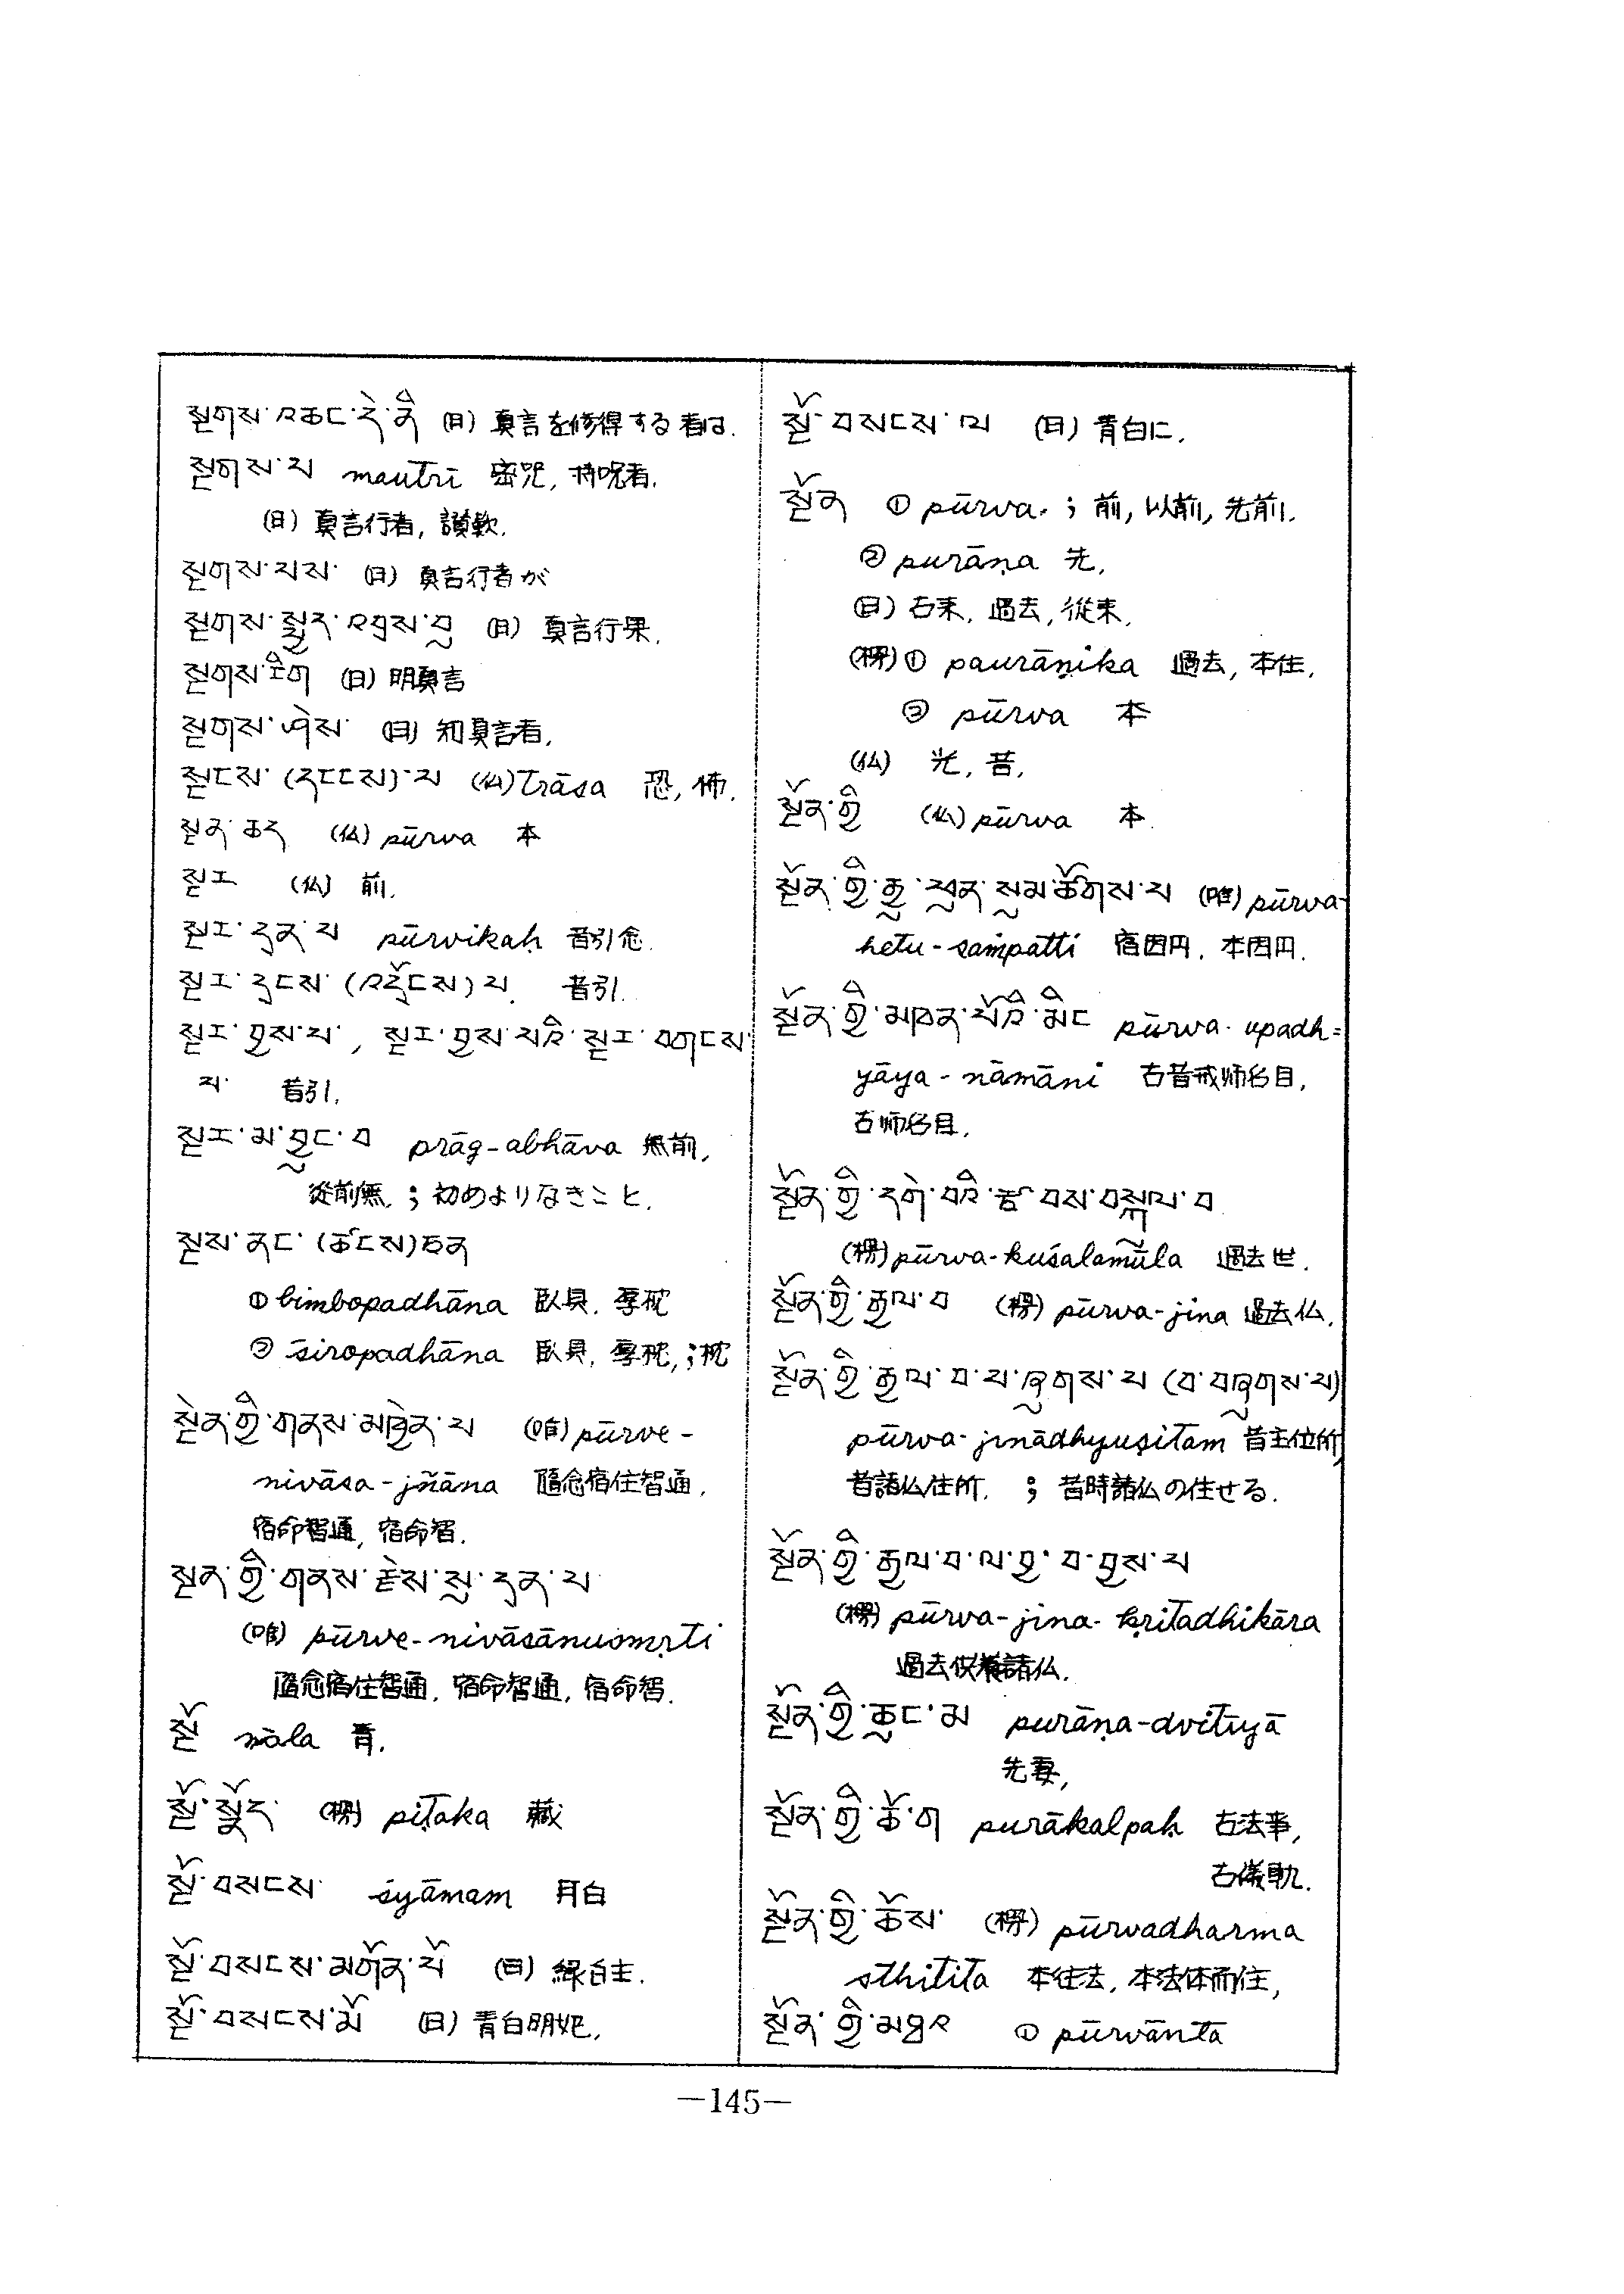 སྔགས་འཆང་དེ་ནི (日) 真言を修得する者は.
སྔགས་པ mautrī 密咒, 持呪者.
(日) 真言行者, 讃歎.
སྔགས་པས་ (日) 真言行者が
སྔགས་སྤྱད་འབྲས་བུ (日) 真言行果.
སྔགས་རིག (日) 明真言
སྔགས་ཤེས་ (日) 知真言者.
སྔངས་(དངངས)་པ (仏) trāsa 恐, 怖.
སྔན་ཆད (仏) pūrva 本
སྔར (仏) 前.
སྔར་དྲན་པ pūrvikaḥ 昔引念.
སྔར་དྲངས་(འདྲོངས)པ. 昔引.
སྔར་བྱས་པ་, སྔར་བྱས་པའི་སྔར་བཀངས་
པ་ 昔引.
སྔར་མ་བྱུང་བ prāg-abhāva 無前,
從前無. ; 初めよりなきこと.
སྔས་ནང་(ཚངས)ཅན
① bimbopadhāna 臥具. 厚枕
② śiropadhāna 臥具. 厚枕, ; 枕
སྔེན་གྱི་གནས་མཁྱེན་པ (唯) pūrve-
nivāsa-jñāna 隨念宿住智通.
宿命智通, 宿命智.
སྔན་གྱི་གནས་རྗེས་སུ་དྲན་པ
(唯) pūrve-nivāsānusmṛti
隨念宿住智通. 宿命智通, 宿命智.
སྔོ nāla 青.
སྔོ་སྣོད་ (楞) piṭaka 藏
སྔོ་བསངས་ śyāmam 月白
སྔོ་བསངས་མགོན་པོ (日) 緑自主.
སྔོ་བསངས་མོ (日) 青白明妃.
སྔོ་བསངས་ལ (日) 青白に.
སྔོན ① pūrva. ; 前, 以前, 先前.
② purāṇa 先.
(日) 古来. 過去, 従来.
(楞) ① paurāṇika 過去, 本住.
② pūrva 本
(仏) 光. 昔.
སྔོན་གྱི (仏) pūrva 本.
སྔོན་གྱི་རྒྱུ་ཕུན་སུམ་ཚོགས་པ (唯) pūrva-
hetu-saṁpatti 宿因円. 本因円.
སྔོན་གྱི་མཁན་པོའི་མིང pūrva-upadh=
yāya-nāmāni 古昔戒师名目,
古师名目.
སྔོན་གྱི་དགེ་བའི་རྩ་བས་བསྐུལ་བ
(楞) pūrva-kuśalamūla 過去世.
སྔོན་གྱི་རྒྱལ་བ (楞) pūrva-jina 過去仏.
སྔོན་གྱི་རྒྱལ་བ་པ་ཞུགས་པ (བ་བཞུགས་པ)
pūrva-jinādhyuṣitam 昔主位所
昔諸仏住所. ; 昔時諸仏の住せる.
སྔོན་གྱི་རྒྱལ་བ་ལ་བྱ་བ་བྱས་པ
(楞) pūrva-jina-kṛitadhikāra
過去供養諸仏.
སྔོན་གྱི་ཆུང་མ purāṇa-dvitīyā
先妻,
སྔོན་གྱི་ཆོ་ག purākalpaḥ 古法事,
古儀軌.
སྔོན་གྱི་ཆོས་ (楞) pūrvadharma
sthititā 本住法, 本法体而住,
སྔོན་གྱི་མཐའ ① pūrvānta
—145—